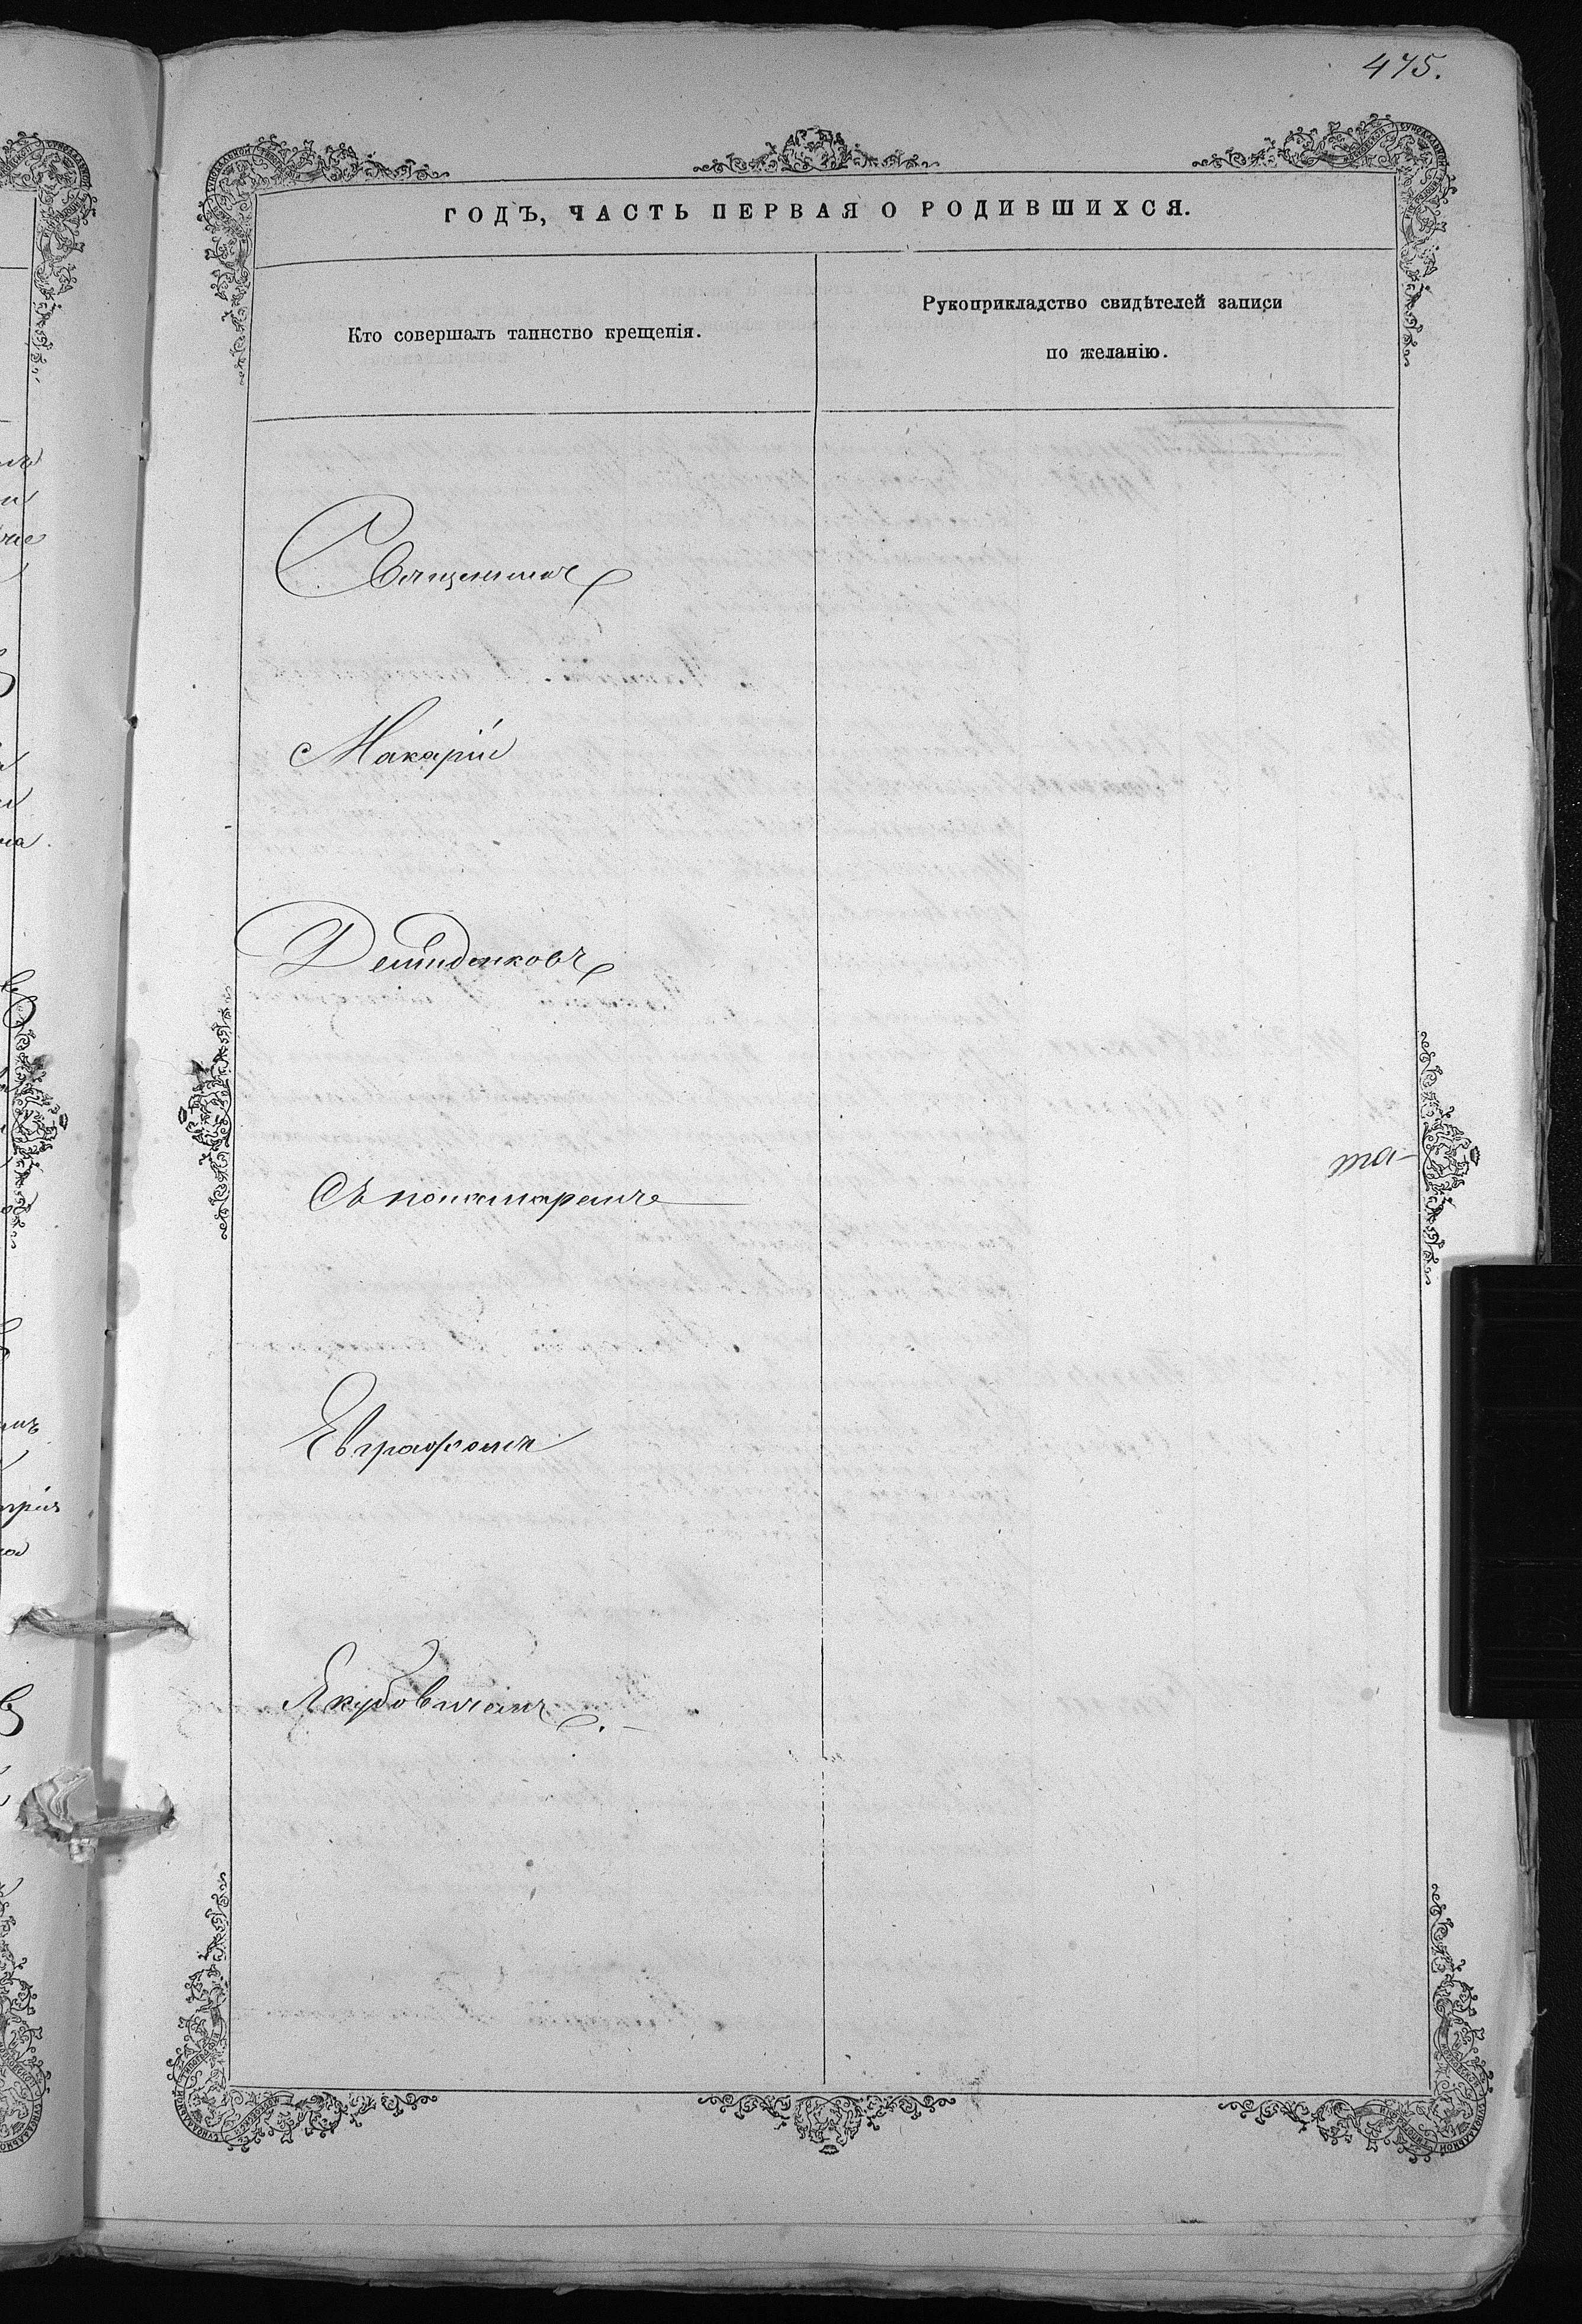 475.
ГОДЪ, ЧАСТЬ ПЕРВАЯ О РОДИВШИХСЯ.
Кто совершалъ таинство крещенія.
Рукоприкладство свидѣтелей записи
по желанію.
Священникъ
Макарій
Демиденковъ
Съ пономаремъ
та-
Евграфомъ
Якубовичемъ.